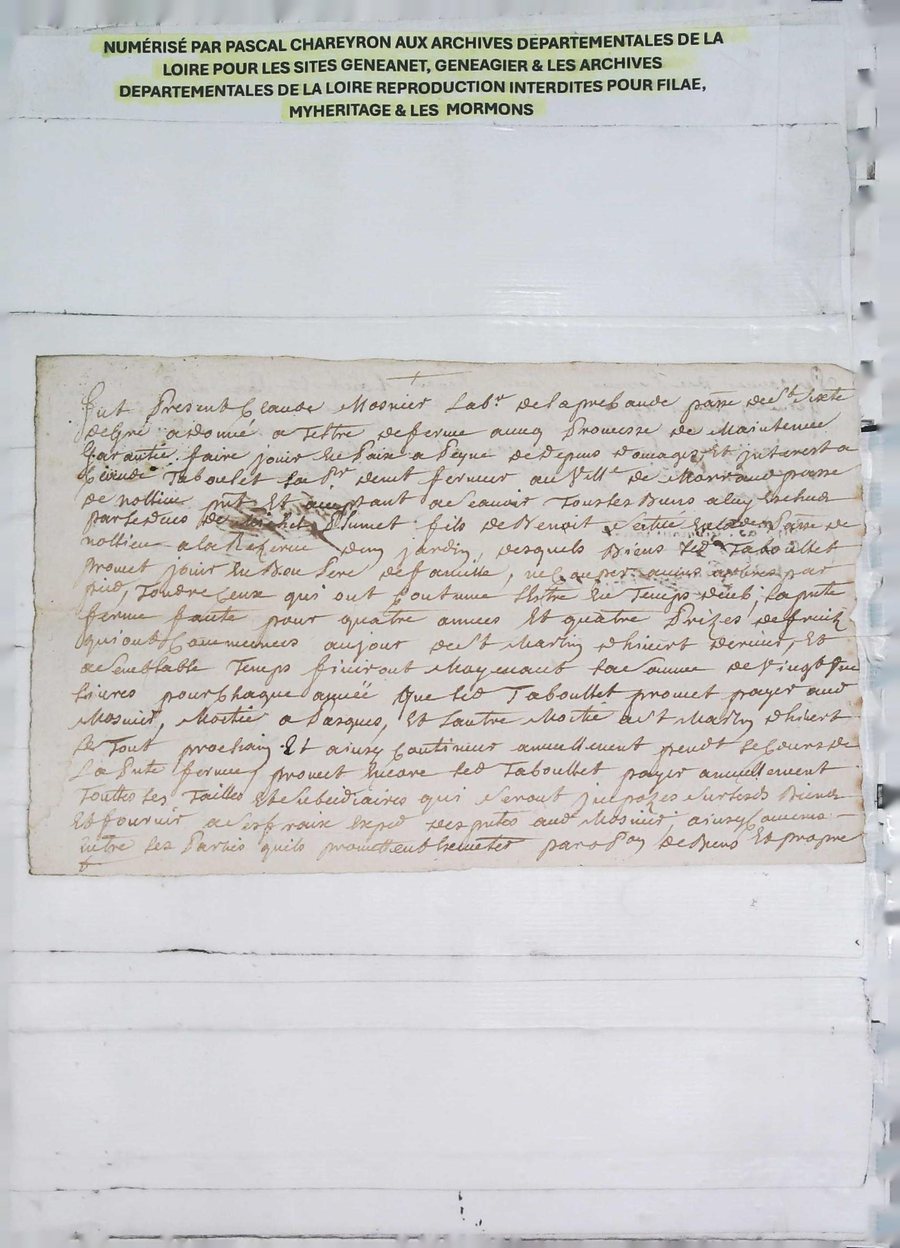 NUMÉRISÉ PAR PASCAL CHAREYRON AUX ARCHIVES DEPARTEMENTALES DE LA
LOIRE POUR LES SITES GENEANET, GENEAGIER & LES ARCHIVES
DEPARTEMENTALES DE LA LOIRE REPRODUCTION INTERDITES POUR FILAE,
MYHERITAGE & LES MORMONS
Fut Present Claude Mosnier Labr de la prebande parre de St Sixte
de gré a donné a tiltre de ferme avecq Promesse de Maintenue
Garantie faire jouir En Paix a Peyne de Depens Domages Et Interest a
Taboulet La Br fermier au Ville de parre
de nollieu pnt Et acceptant a Scavoir Toustes Biens a luy Escheus
par le deces de fils de Benoit Parre de
nollieu a la Rezerve d'un jardin, desquels Biens led Taboullet
promet jouir En Bon Pere de famille, ne Couper aucuns arbres par
pied, Tondre Ceux qui ont Coutume Estre En Temps deub, La pnte
ferme faite pour quatre annees Et quatre Prizes de fruitz
qui ont Commencees au jour de St Martin d'hivert dernier, Et
a Semblable Temps finiront Moyenant La Somme de Vingt
Livres pour Chaque année Que led Taboullet promet payer aud
Mosnier, Moitié a Pasques, Et Lautre Moitié a St Martin d'hivert
Le Tout prochain Et ainsy Continuer annuellement pendt Le Cours de
La Pnte ferme, promet Encore led Taboullet payer annuellement
Touttes Les Tailles Et Subcidiaires qui Seront jmpozes Sur lesds Biens
Et fournir a Ses fraix Exped des pntes aud Mosnier ainsy Convenu
entre Les Parties quils promettent de Biens Et propre